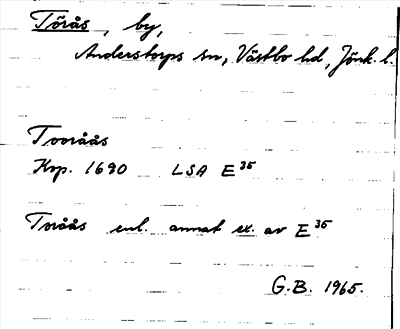 Törås, by,
Anderstorps sn, Västbo hd, Jönk. l.
Tooråås
Kop. 1690 LSA E 35
Toråås enl. annat ex. av E 35
G.B. 1965.